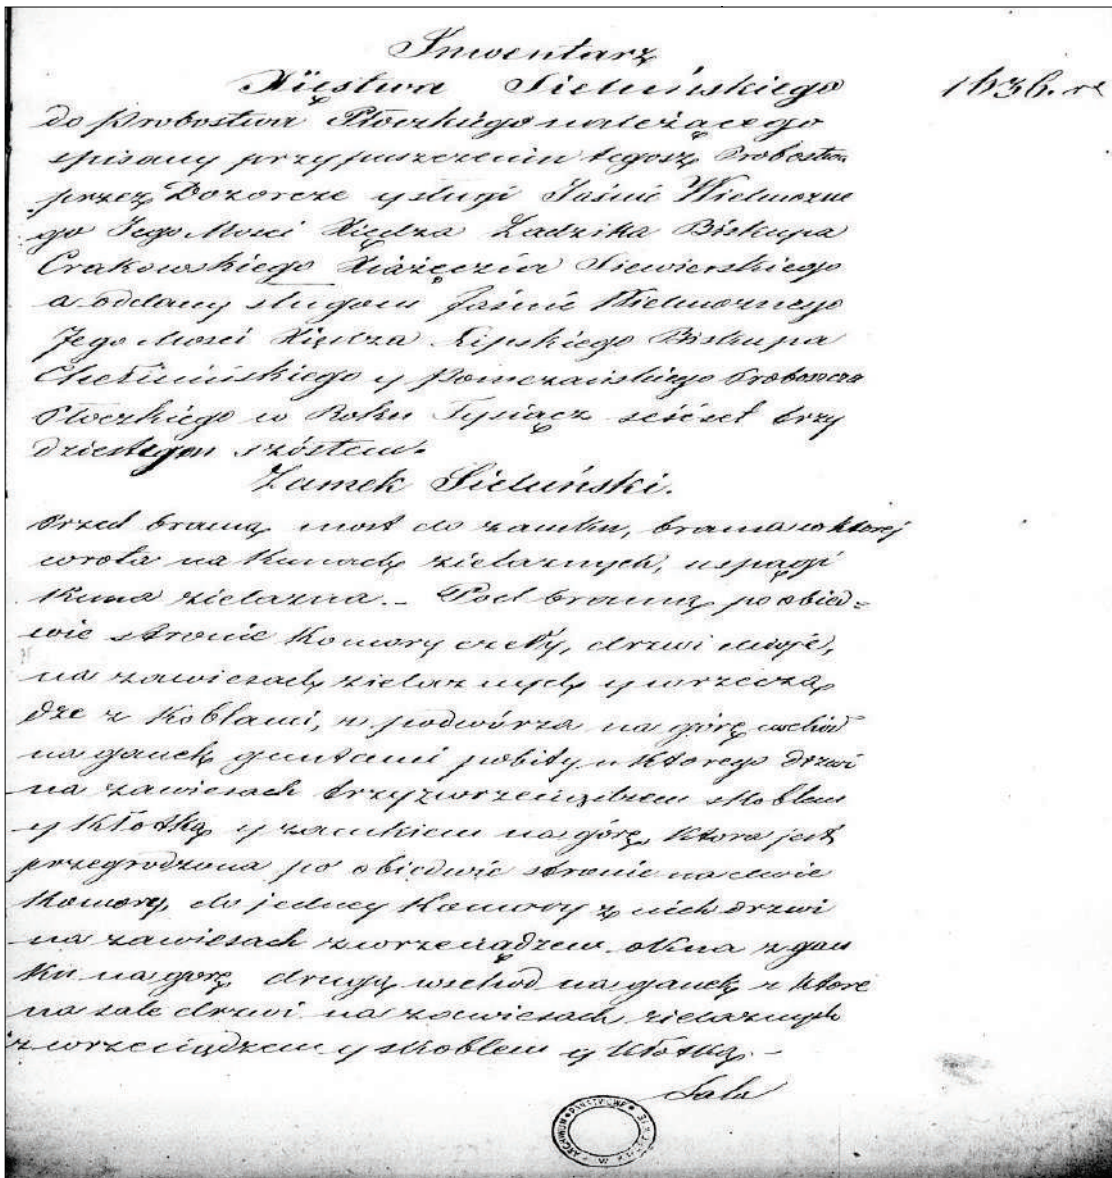 Inwentarz
Xięstwa Sieluńskiego 1636. r
do Probostwa Płoczkiego należącego
spisany przypuszczeniu tegosz Probostwa
przez Dozorcze y sługi Jaśnie Wielmożne
go Jego Mości Xiędza Zadzika Biskupa
Crakowskiego Xiążęczia Siewierskiego
a oddany sługom Jaśnie Wielmożnego
Jego Mości Xiędza Lipskiego Biskupa
Chełmińskiego y Pomezańskiego Proboszcza
Płoczkiego w Roku Tysiącz seśćset trzy
dziestym szóstem.
Zamek Sieluński.
Przed bramą most do zamku, brama w ktorej
wrota na Kunach żielaznych, uspągi
Kuna żielazna. – Pod bramą po obied-
wie stronie Komory cztery, drzwi dwoje,
na zawiesach żielaznych y wrzecżą
dze z Koblami, z podwórza na górę wchód
na ganek gontami pobity u ktorego drzwi
na zawiesach trzy z wrzeciądzem skoblem
y Kłotką y zamkiem na górę, ktora jest
przegrodzona po obiedwie stronie na dwie
Komory, do jedney Komory z nich drzwi
na zawiesach z wrzeciądzem. Okna z gan
ku na gorę drugą wschod na ganek z ktore
na sale drzwi na zawiesach żielaznych
z wrzeciądzem y skoblem y Kłotką. –
Sala
ARCHIWUM PAŃSTWOWE